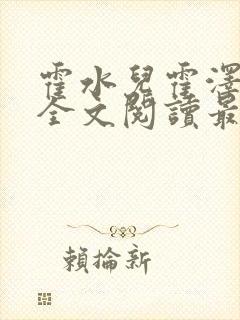 霍水兒霍澤
全文閱讀最
賴掄新